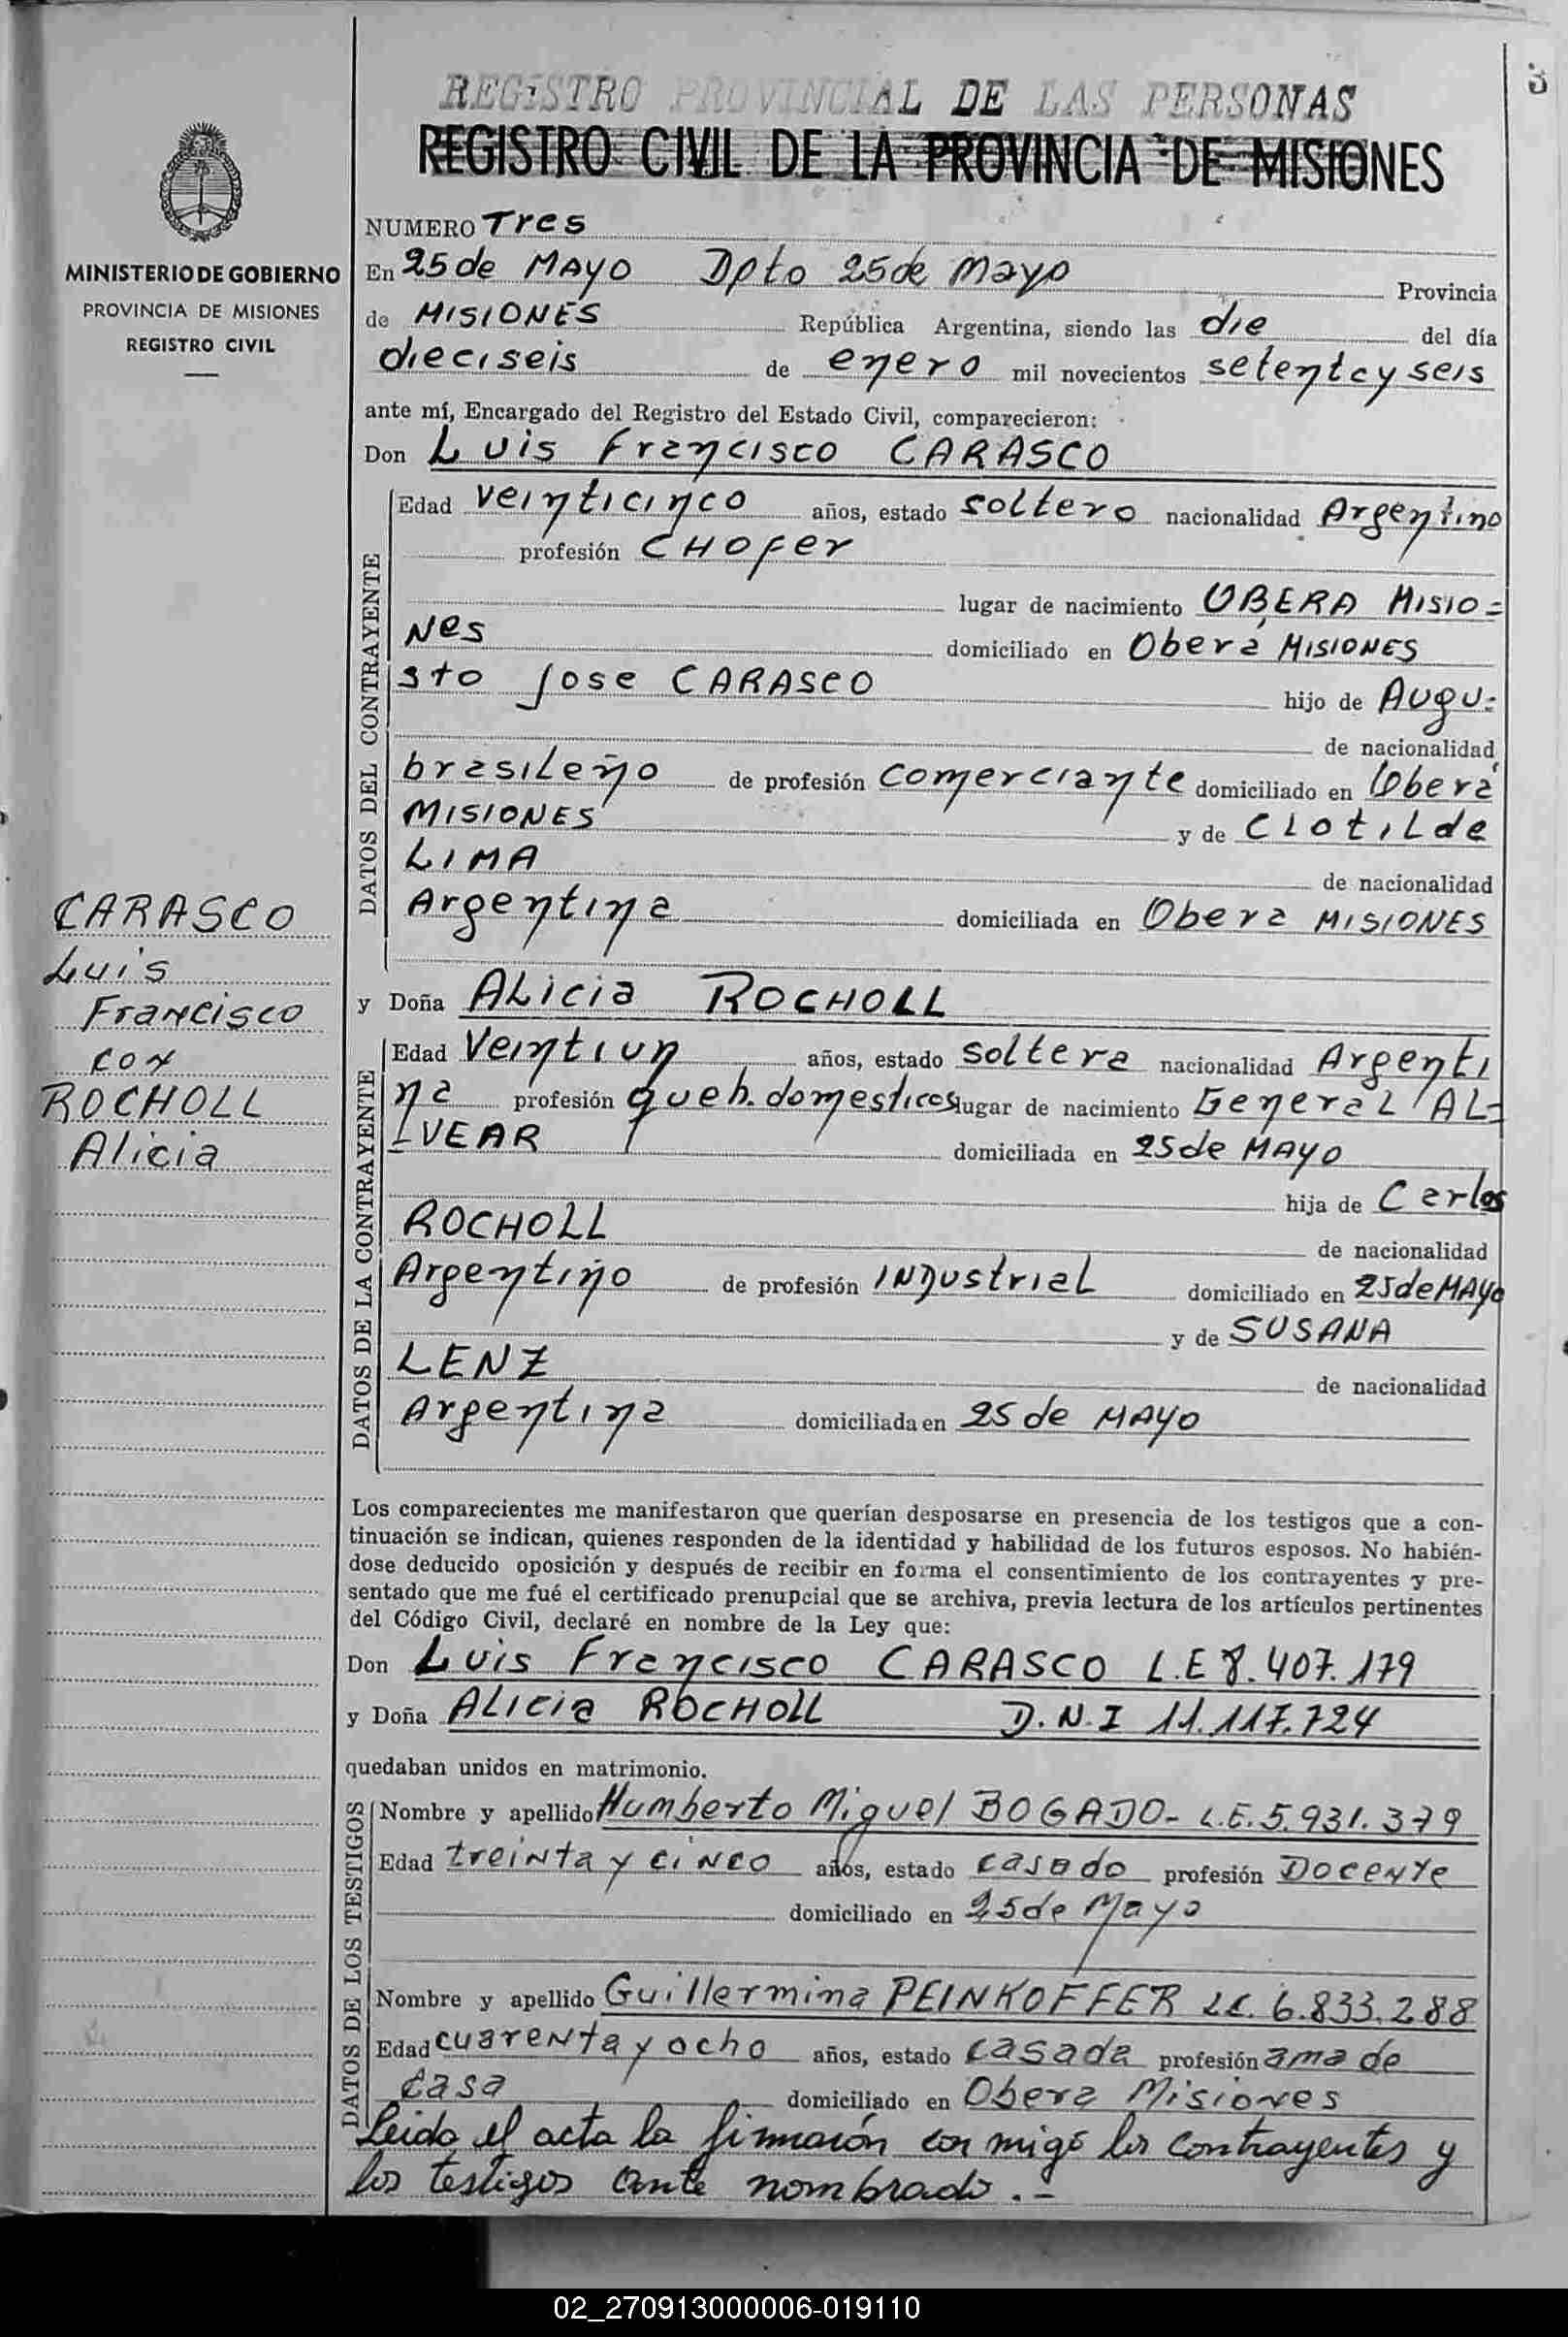 3
REGISTRO PROVINCIAL DE LAS PERSONAS
REGISTRO CIVIL DE LA PROVINCIA DE MISIONES
MINISTERIO DE GOBIERNO
PROVINCIA DE MISIONES
REGISTRO CIVIL
CARASCO
Luis
Francisco
con
ROCHOLL
Alicia
NUMERO Tres
En 25 de MAYO Dpto 25 de Mayo Provincia
de MISIONES República Argentina, siendo las die del día
dieciseis de enero mil novecientos setentay seis
ante mí, Encargado del Registro del Estado Civil, comparecieron:
Don Luis Francisco CARASCO
DATOS DEL CONTRAYENTE
Edad veinticinco años, estado soltero nacionalidad Argentino
profesión CHOfer
lugar de nacimiento OBERA MISIO=
Nes domiciliado en Oberá MISIONES
sto Jose CARASCO hijo de Augu=
de nacionalidad
brasileño de profesión comerciante domiciliado en Oberá
MISIONES y de CLotilde
LIMA de nacionalidad
Argentina domiciliada en Obera MISIONES
y Doña ALicia ROCHOLL
DATOS DE LA CONTRAYENTE
Edad Veintiun años, estado soltera nacionalidad Argenti
na profesión queh. domesticos lugar de nacimiento General AL=
VEAR domiciliada en 25 de MAYO
hija de Carlos
ROCHOLL de nacionalidad
Argentino de profesión INDustriaL domiciliado en 25 de MAYO
y de SUSANA
LENZ de nacionalidad
Argentina domiciliada en 25 de MAYO
Los comparecientes me manifestaron que querían desposarse en presencia de los testigos que a con-
tinuación se indican, quienes responden de la identidad y habilidad de los futuros esposos. No habién-
dose deducido oposición y después de recibir en forma el consentimiento de los contrayentes y pre-
sentado que me fué el certificado prenupcial que se archiva, previa lectura de los artículos pertinentes
del Código Civil, declaré en nombre de la Ley que:
Don Luis Francisco CARASCO L.E 8.407.179
y Doña ALicia ROCHOLL D.N.I 11.117.724
quedaban unidos en matrimonio.
DATOS DE LOS TESTIGOS
Nombre y apellido Humberto Miguel BOGADO- L.E. 5.931.379
Edad treinta y cinco años, estado casado profesión Docente
domiciliado en 25 de Mayo
Nombre y apellido Guillermina PEINKOFFER L.C. 6.833.288
Edad cuarenta y ocho años, estado casada profesión ama de
casa domiciliado en Obera Misiones
Leida el acta la firmarón con migo los contrayentes y
los testigos ante nombrado.-
02_270913000006-019110